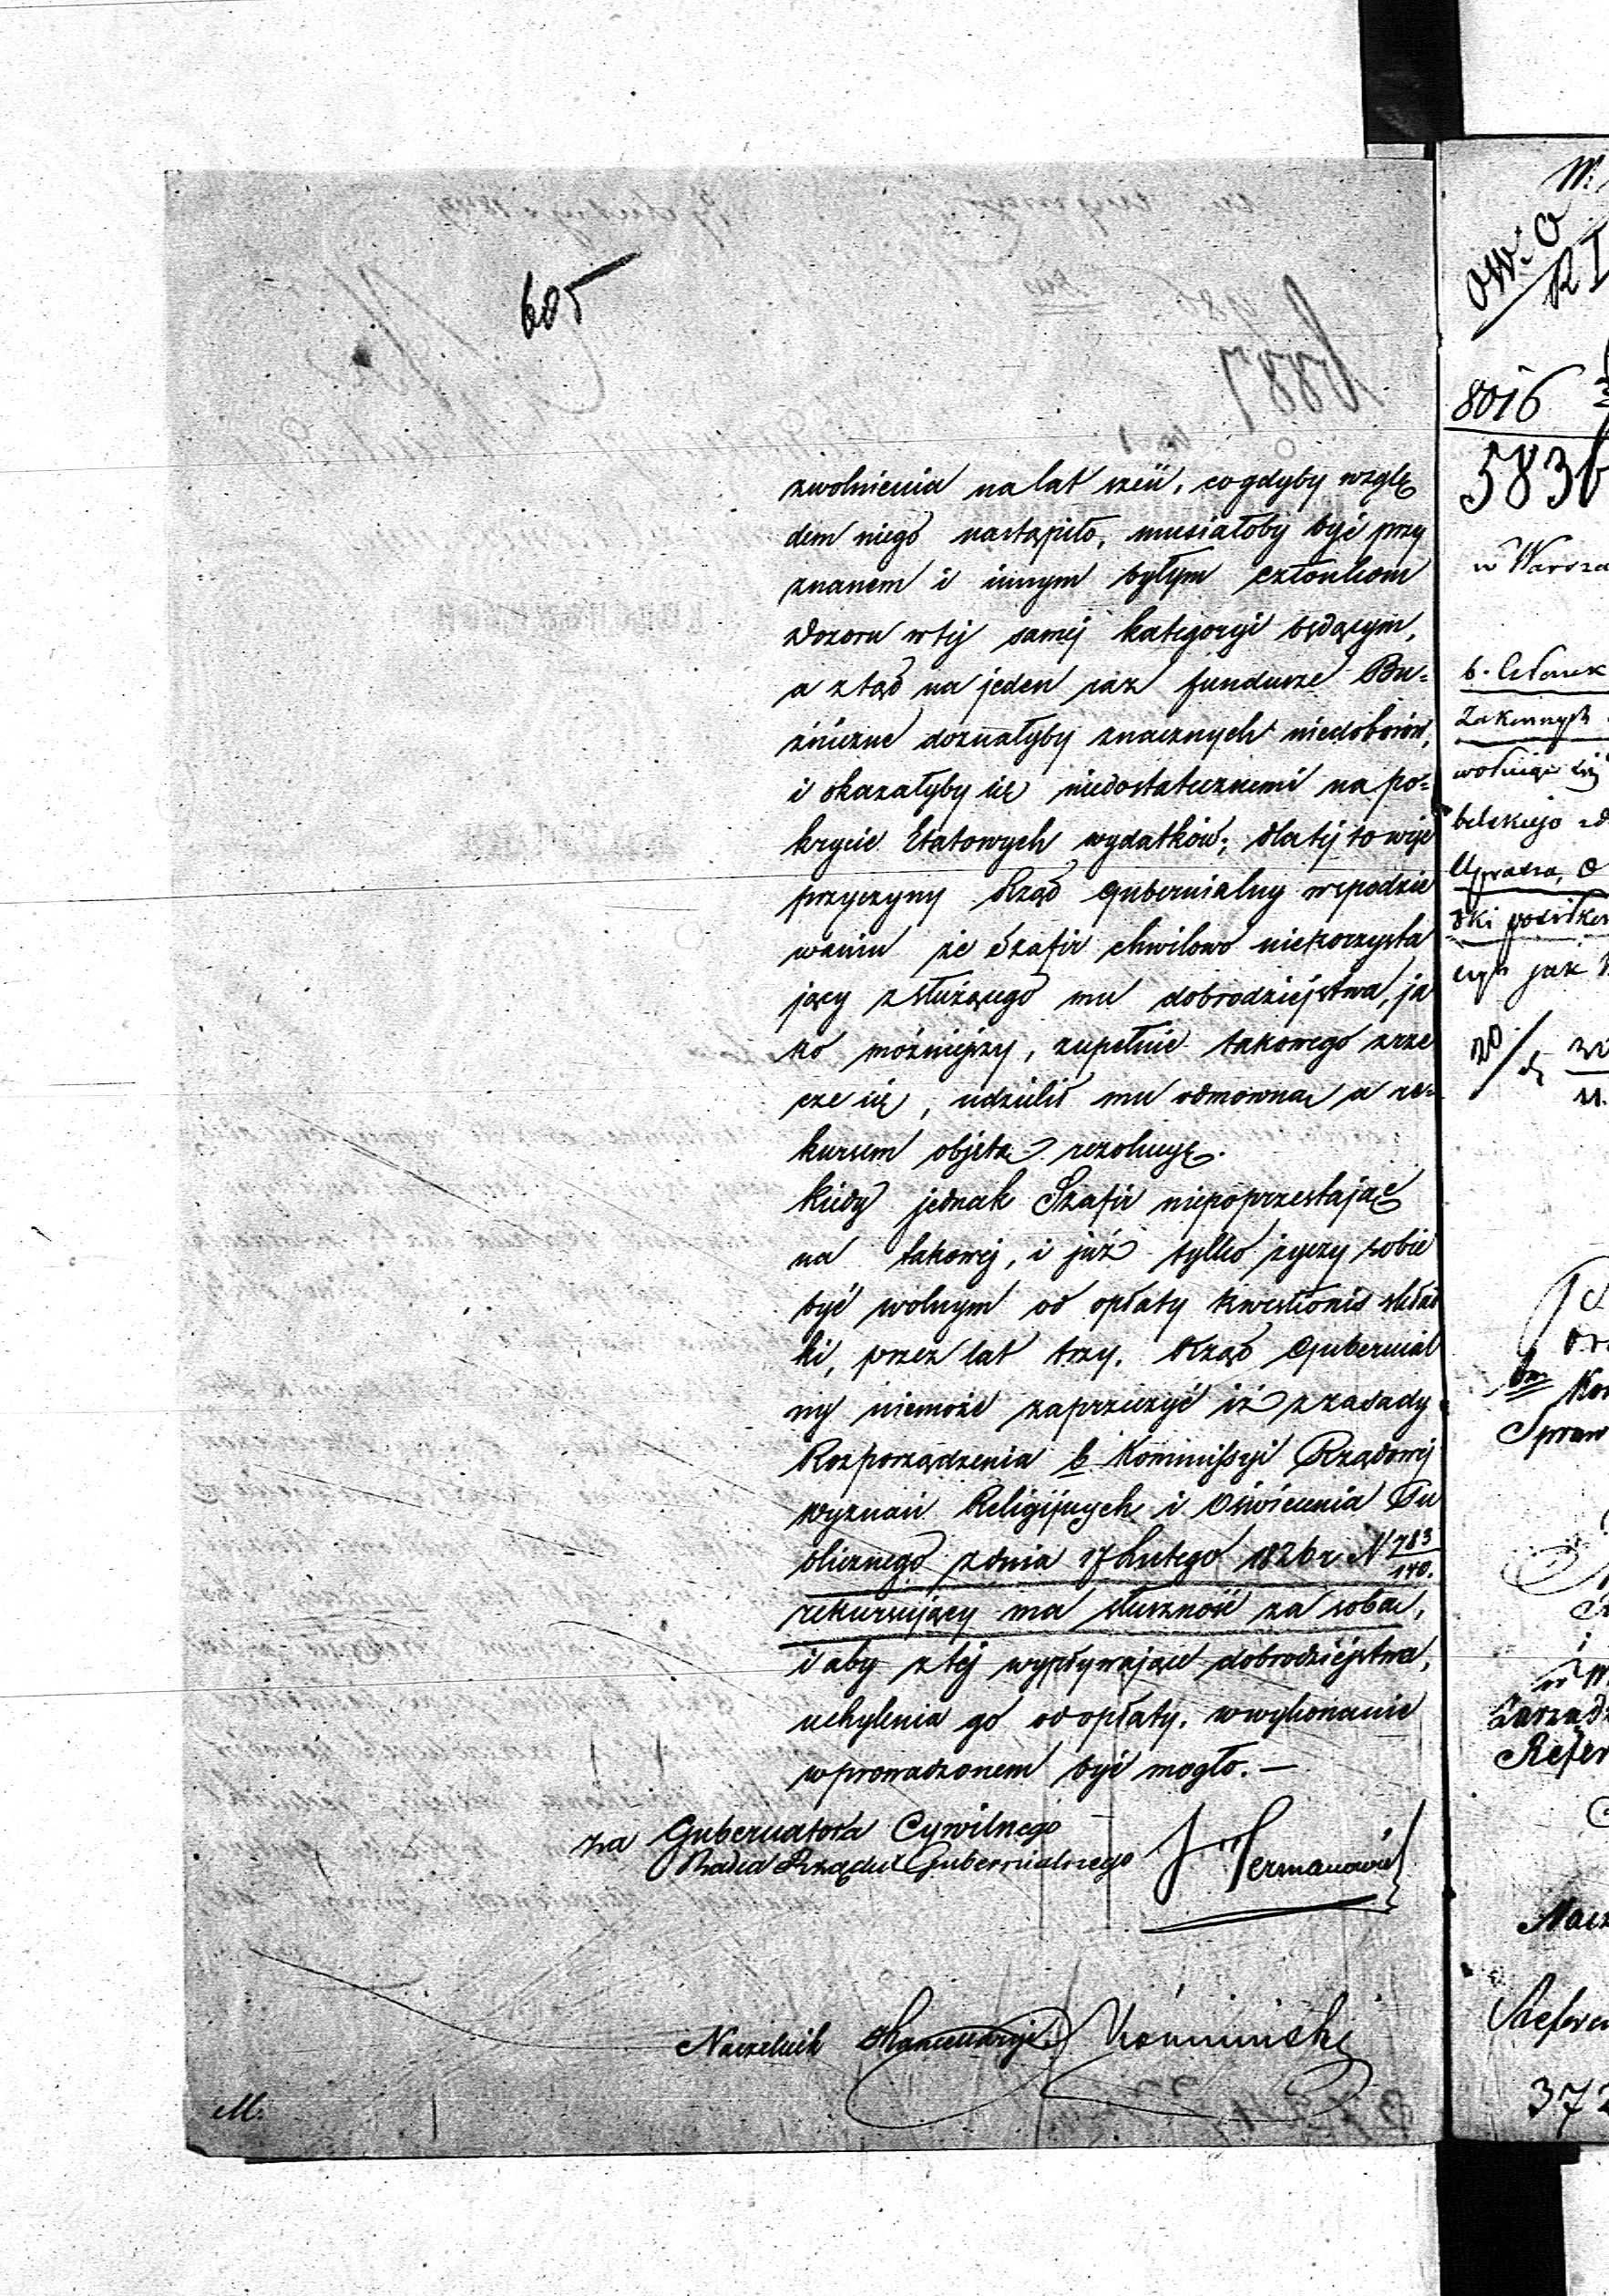 605
zwolnienia na lat sześć, co gdyby wzglę
dem niego nastąpiło, musiałoby być przy
znanem i innym byłym członkom
Dozoru w tej samej kategoryi będącym,
a ztąd na jeden raz fundusze Bu=
źnicze doznałyby znacznych niedoborów,
i okazałyby się niedostatecznemi na po=
krycie Etatowych wydatków; dla tej to więc
przyczyny Rząd Gubernialny w spodzie
waniu że Szafir chwilowo niekorzysta
jący z służącego mu dobrodziejstwa, ja
ko możniejszy, zupełnie takowego zrze
cze się, udzielił mu odmowną a re=
kursem objętą rezolucyę.
Kiedy jednak Szafir niepoprzestając
na takowej, i już tylko życzy sobie
być wolnym od opłaty kwestionis skład
ki, przez lat trzy. Rząd Gubernial
ny niemoże zaprzeczyć iż z zasady
Rozporządzenia b Kommissyi Rządowej
Wyznań Religijnych i Oświecenia Pu
blicznego z dnia 17 Lutego 1826 r N 783/140.
rekursujący ma słuszność za sobą,
i aby z tej wypływające dobrodziejstwa,
uchylenia go od opłaty, w wykonanie
wprowadzonem być mogło. —
za Gubernatora Cywilnego
Radca Rządu Gubernialnego J Hermanowicz
Naczelnik Kancellaryi
M.
8016
583b
w Warsza
b. Członek
20
Spraw
Zarządz
Refer
372